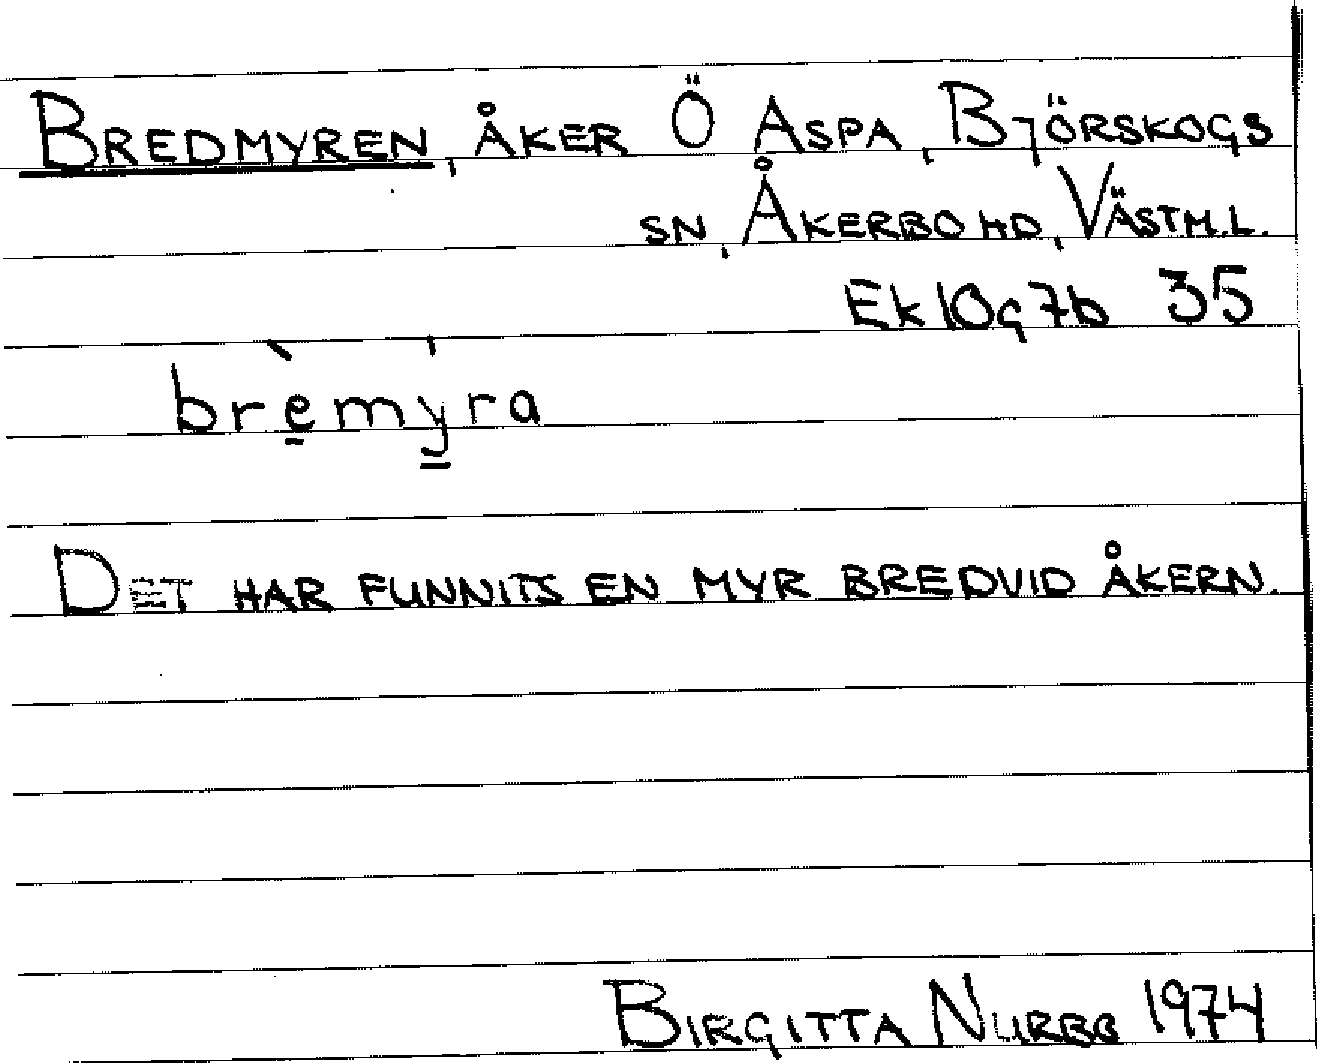 BREDMYREN, ÅKER Ö ASPA, BJÖRSKOGS
SN, ÅKERBO HD, VÄSTM.L.
Ek 10g7b 35
brèmýra
DET HAR FUNNITS EN MYR BREDVID ÅKERN.
BIRGITTA 1974